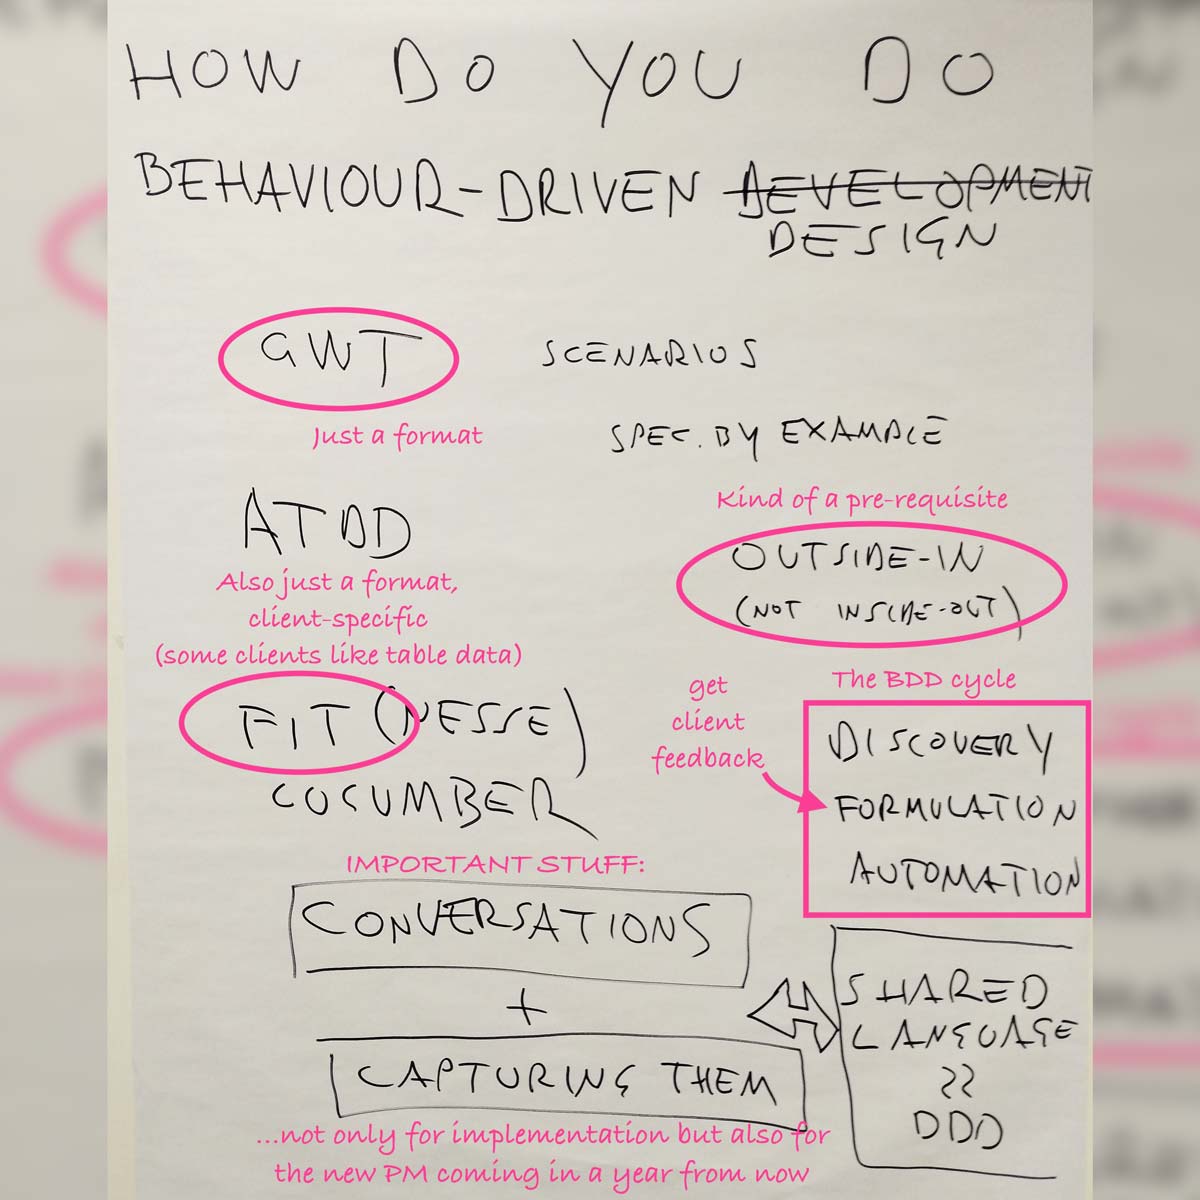 HOW DO YOU DO
BEHAVIOUR-DRIVEN DEVELOPMENT
DESIGN
GWT
SCENARIOS
Just a format
SPEC. BY EXAMPLE
ATDD
Kind of a pre-requisite
OUTSIDE-IN
(NOT INSIDE-OUT)
Also just a format,
client-specific
(some clients like table data)
FIT (NESSE)
CUCUMBER
get
client
feedback
The BDD cycle
DISCOVERY
FORMULATION
AUTOMATION
IMPORTANT STUFF:
CONVERSATIONS
+
CAPTURING THEM
SHARED
LANGUAGE
DDD
...not only for implementation but also for
the new PM coming in a year from now